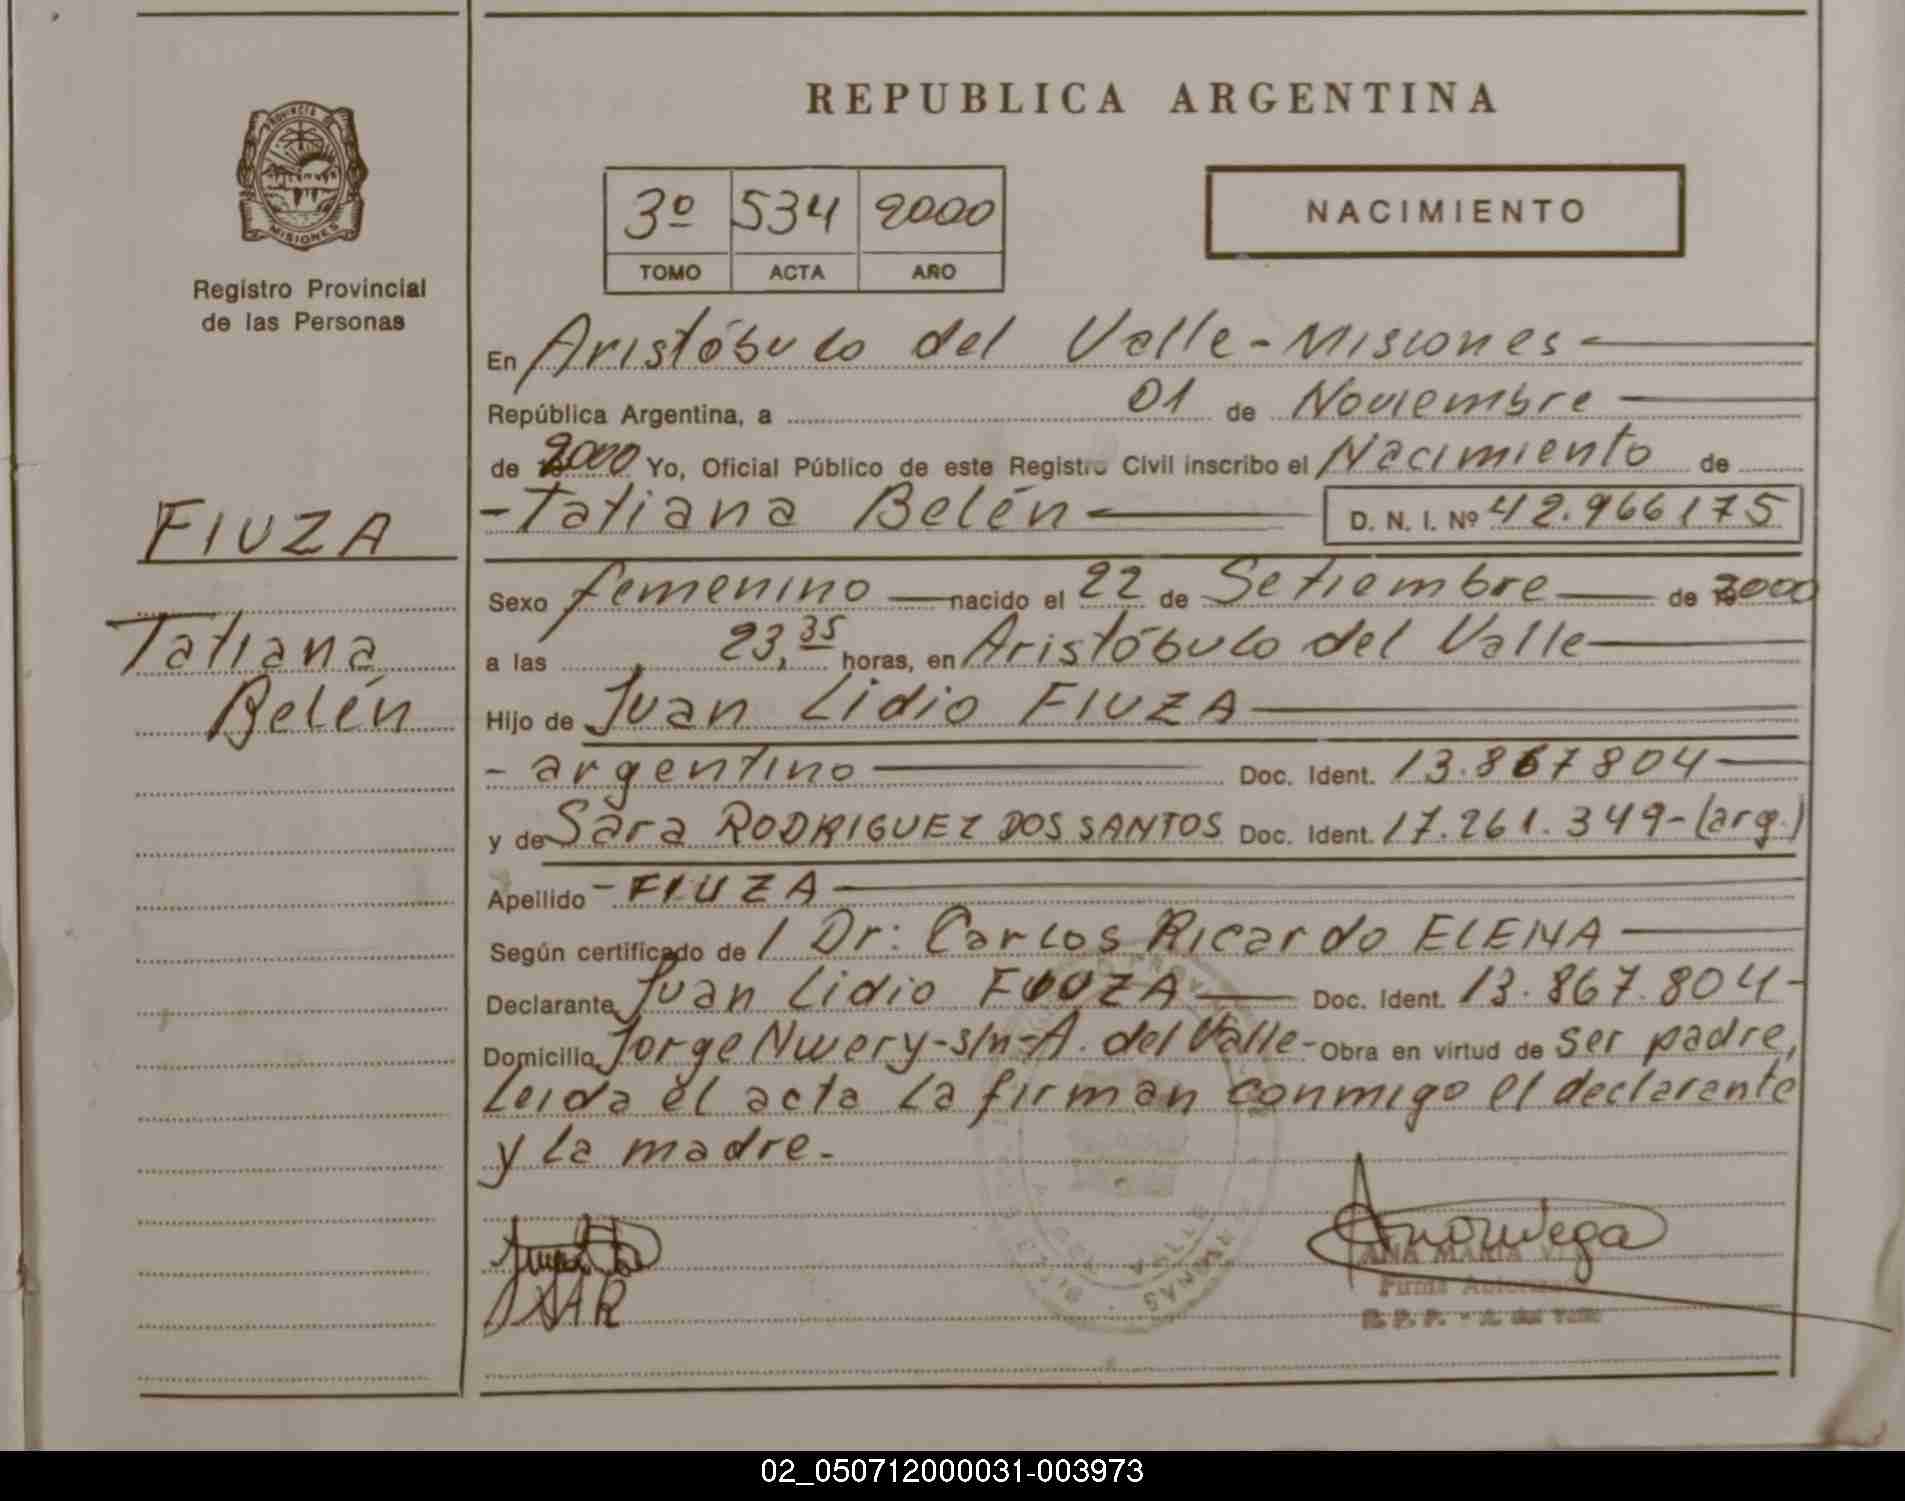 REPUBLICA ARGENTINA
PROVINCIA DE
MISIONES
Registro Provincial
de las Personas
3º 534 2000
TOMO ACTA AÑO
NACIMIENTO
En Aristóbulo del Valle - Misiones
República Argentina, a 01 de Noviembre
de 2000 Yo, Oficial Público de este Registro Civil inscribo el Nacimiento de
- Tatiana Belén D. N. I. Nº 42.966175
FIUZA
Tatiana
Belén
Sexo femenino nacido el 22 de Setiembre de 2000
a las 23,35 horas, en Aristóbulo del Valle
Hijo de Juan Lidio FIUZA
- argentino Doc. Ident. 13.867804
y de Sara RODRIGUEZ DOS SANTOS Doc. Ident. 17.261.349-(arg.)
Apellido - FIUZA
Según certificado de / Dr: Carlos Ricardo ELENA
Declarante Juan Lidio FIUZA Doc. Ident. 13.867.804-
Domicilio Jorge Nwery-s/n-A. del Valle- Obra en virtud de ser padre,
Leida el acta la firman conmigo el declarante
y la madre.-
ANA MARIA
Firma
R. P. P. - A. del Valle
02_050712000031-003973